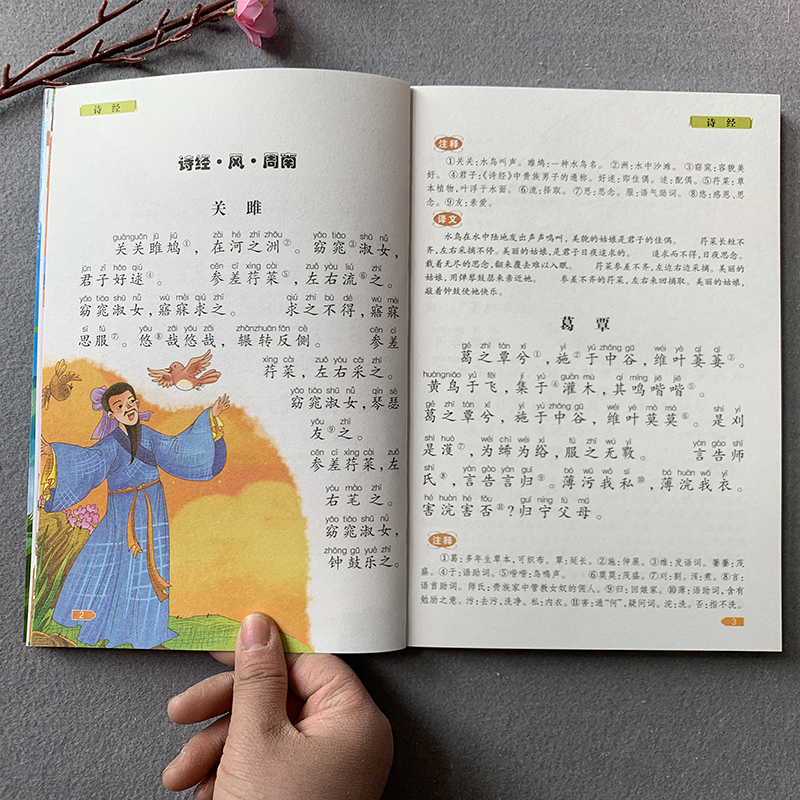 诗 经
诗经·风·周南
关 雎
guānguān jū jiū zài hé zhī zhōu yǎo tiǎo shū nǚ
关关雎鸠①，在河之洲②。窈窕③淑女，
jūn zǐ hǎo qiú cēn cī xìng cài zuǒ yòu liú zhī
君子好逑④。 参差荇菜⑤，左右流⑥之。
yǎo tiǎo shū nǚ wù mèi qiú zhī qiú zhī bù dé wù mèi
窈窕淑女，寤寐求之。 求之不得，寤寐
sī fú yōu zāi yōu zāi zhǎnzhuǎn fǎn cè cēn cī
思服⑦。悠⑧哉悠哉，辗转反侧。 参差
xìng cài zuǒ yòu cǎi zhī
荇菜，左右采之。
yǎo tiǎo shū nǚ qín sè
窈窕淑女，琴瑟
yǒu zhī
友⑨之。
cēn cī xìng cài zuǒ
参差荇菜，左
yòu mào zhī
右芼之。
yǎo tiǎo shū nǚ
窈窕淑女，
zhōng gǔ yuè zhī
钟鼓乐之。
2
诗 经
注释
①关关:水鸟叫声。雎鸠:一种水鸟名。 ②洲:水中沙滩。 ③窈窕:容貌美
好。 ④君子:《诗经》中贵族男子的通称。好逑:即佳偶。逑:配偶。 ⑤荇菜:草
本植物,叶浮于水面。 ⑥流:择取。 ⑦思:思念。服:语气助词。 ⑧悠:感思、思
念。⑨友:亲爱。
译文
水鸟在水中陆地发出声声鸣叫,美貌的姑娘是君子的佳偶。 荇菜长短不
齐,左右采摘不停。美丽的姑娘,是君子日夜追求的。 追求而不得,日夜思念。
载着无尽的思念,翻来覆去难以入眠。 荇菜参差不齐,左边右边采摘。美丽的
姑娘,用弹琴鼓瑟来亲近她。 参差不齐的荇菜,左右来回摘取。美丽的姑娘,
敲着钟鼓使她快乐。
葛 覃
gé zhī tán xī yì yú zhōng gǔ wéi yè qī qī
葛之覃兮①，施②于中谷，维叶萋萋③。
huángniǎo yú fēi jí yú guàn mù qí míng jiē jiē
黄鸟于飞，集于④灌木，其鸣喈喈⑤。
gé zhī tán xī yì yú zhōng gǔ wéi yè mò mò shì yì
葛之覃兮，施于中谷，维叶莫莫⑥。是刈
shì huò wéi chī wéi xì fú zhī wú yì yán gào shī
是濩⑦，为絺为绤，服之无斁。 言告师
shì yán gào yán guī bó wū wǒ sī bó huàn wǒ yī
氏⑧，言告言归⑨。薄污我私⑩，薄浣我衣。
hé huàn hé fǒu guī níng fù mǔ
害浣害否⑪?归宁父母。
注释
①葛:多年生草本,可织布。覃:延长。 ②施:伸展。 ③维:发语词。萋萋:茂
盛。 ④于:语助词。 ⑤喈喈:鸟鸣声。 ⑥莫莫:茂盛。 ⑦刈:割。濩:煮。 ⑧言:
语首助词。师氏:贵族家中管教女奴的佣人。 ⑨归:回娘家。 ⑩薄:语助词,含有
勉励之意。污:去污,洗净。私:内衣。 ⑪害:通“何”,疑问词。浣:洗。否:指不洗。
3